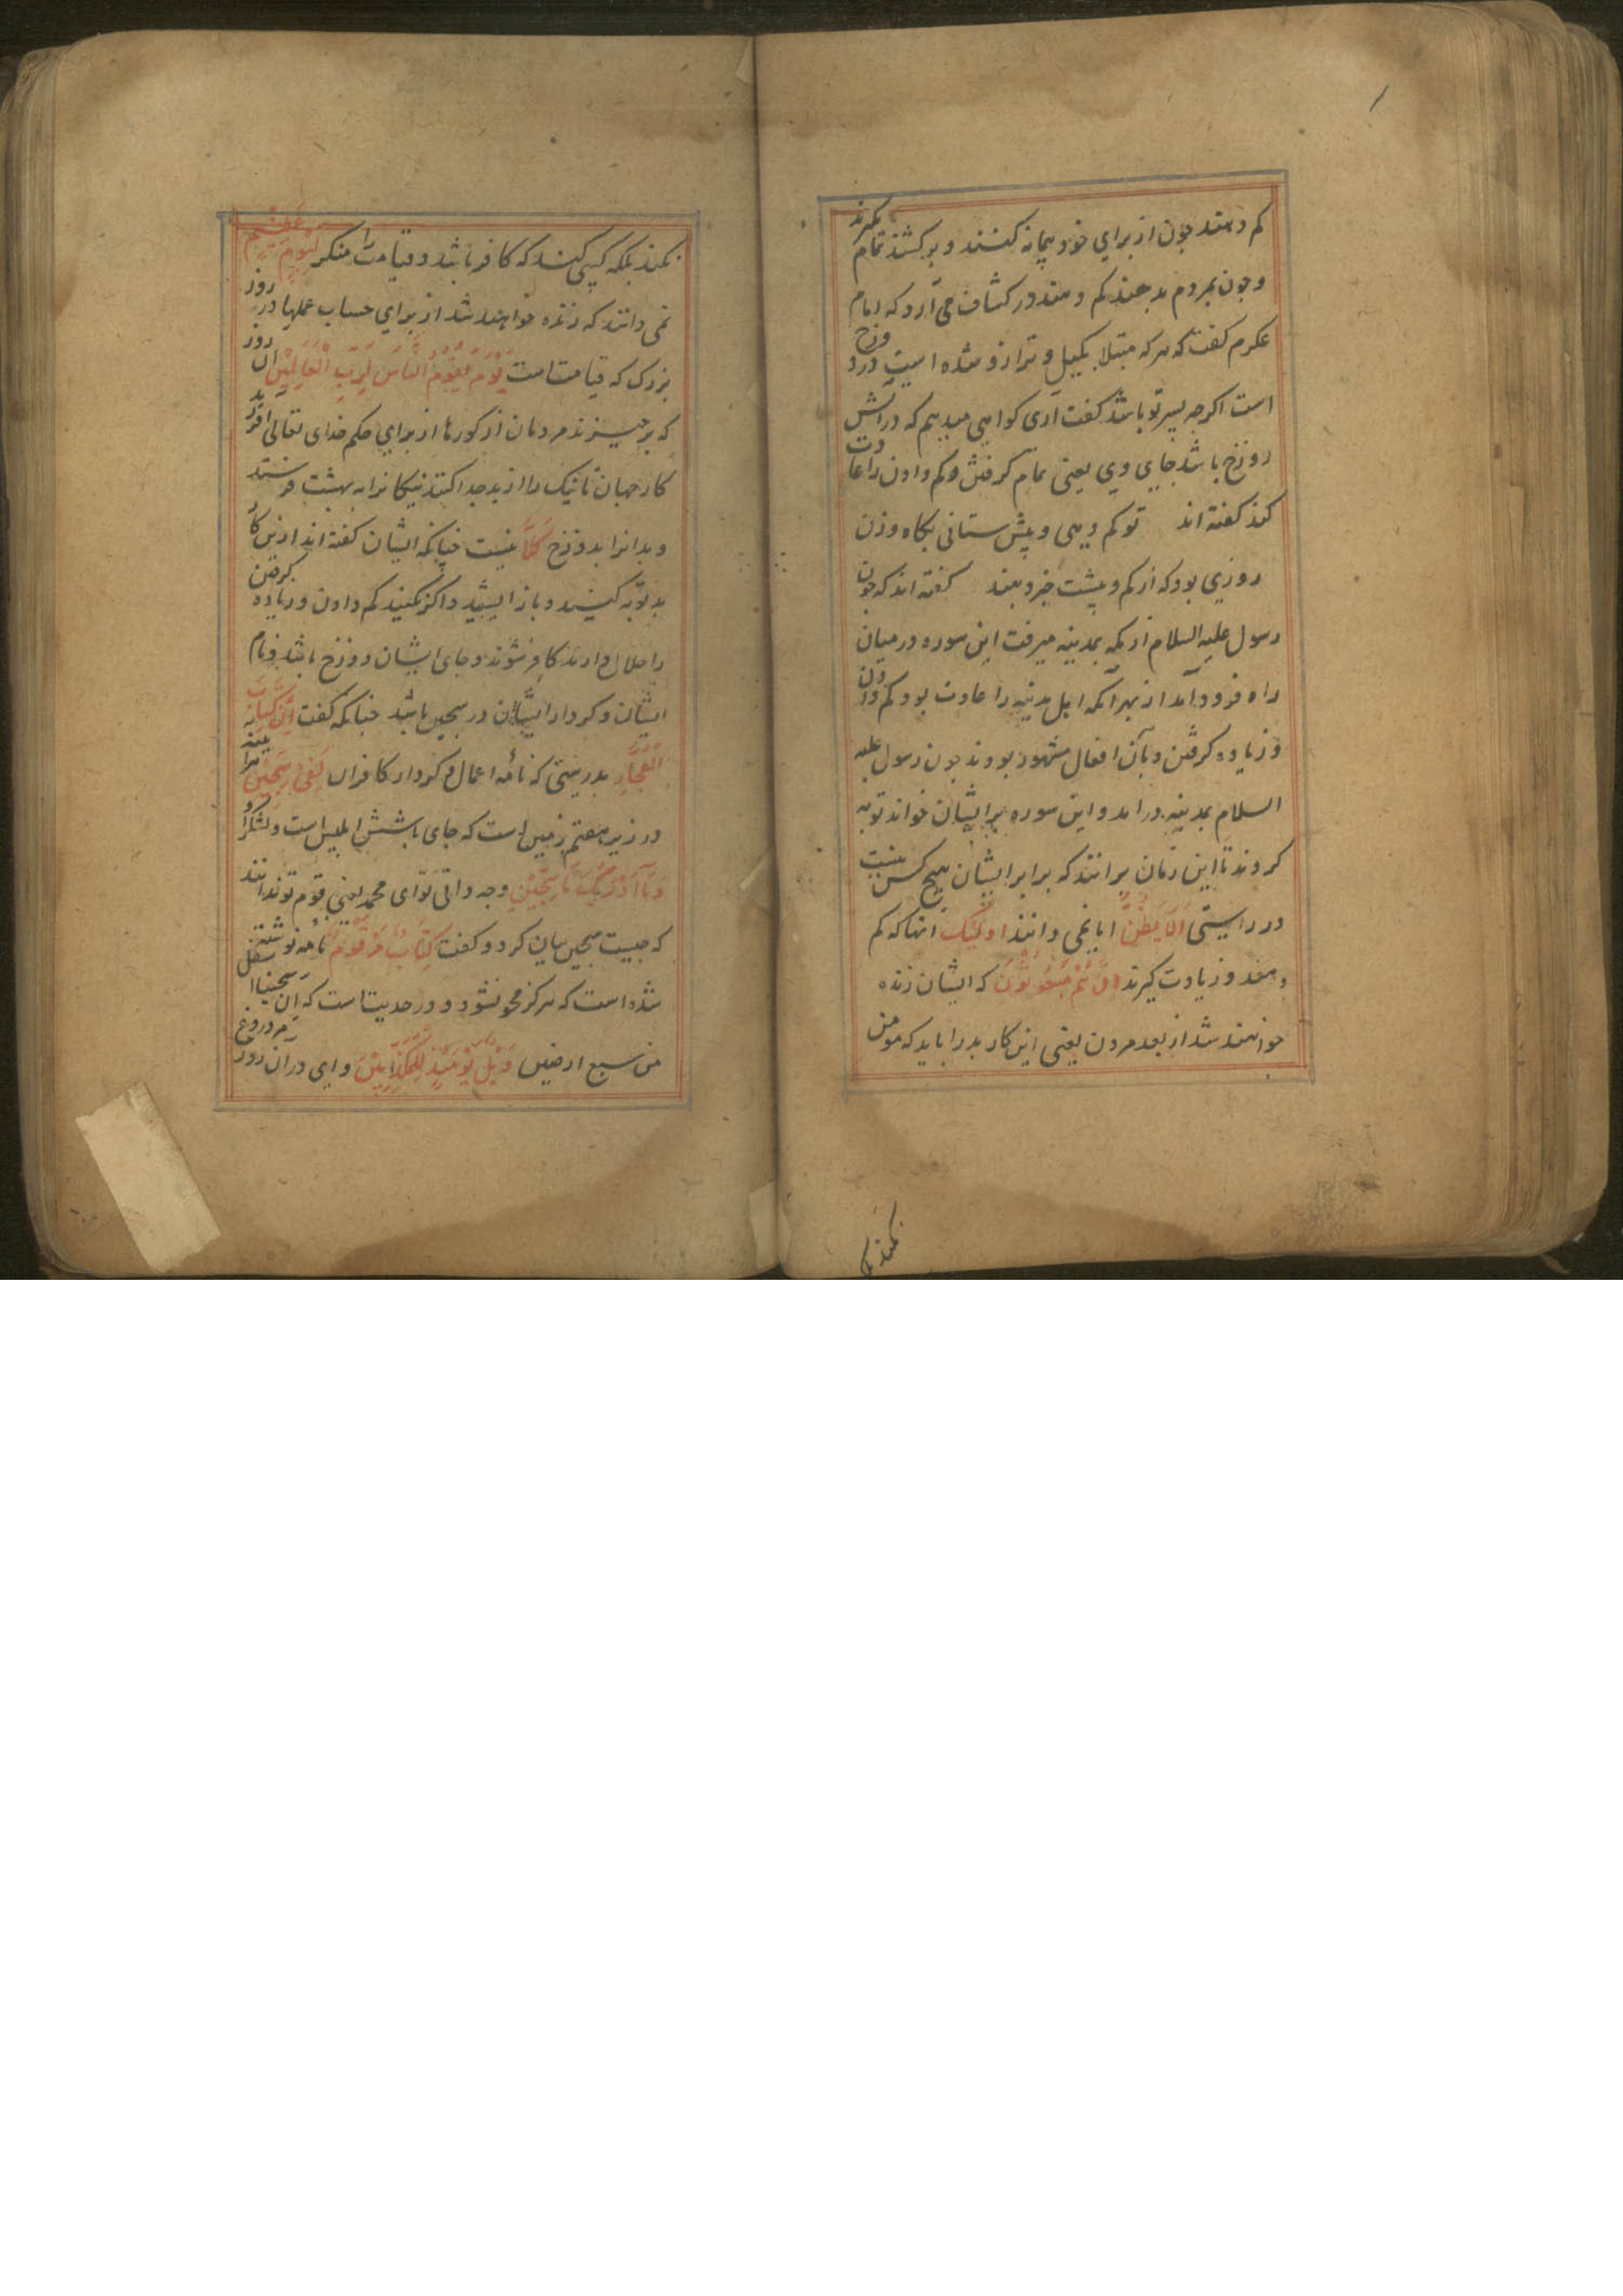 کم دهند چون از برای خود پیمانه کنند و برکشند تمام بگیرند
و چون بمردم بدهند کم دهند در کشاف می آرد که امام
عکرم کفت که هر که مبتلا بکیل و ترازو شده است در دوزخ
است اکرچه پسر تو باشد کفت آری کواهی میدهم که در آتش
دوزخ باشد جای وی یعنی تمام کرفتن و کم دادن را عادت
کند کفته اند تو کم دهی و پیش ستانی بکاه وزن
روزی بود که از کم و پیشت خبر دهند کفته اند که چون
رسول علیه السلام از مکه بمدینه میرفت این سوره در میان
راه فرود آمد از بهر آنکه اهل مدینه را عادت بود کم دادن
و زیاده کرفتن و بآن افعال مشهور بودند چون رسول علیه
السلام بمدینه در آمد و این سوره بر ایشان خواند توبه
کردند تا این زمان برانند که برابر ایشان هیچ کس نیست
در راستی اَلَا یَظُنُّ ایا نمی دانند اُولٰئِکَ آنها که کم
دهند و زیادت کیرند اَنَّهُمْ مَبْعُوثُونَ که ایشان زنده
خواهند شد از بعد مردن یعنی این کار بد را باید که مومن
نکند بلکه
نکند بلکه کسی کند که کافر باشد و قیامت را منکر لِیَوْمٍ عَظِیْمٍ
نمی دانند که زنده خواهند شد از برای حساب عملها در روز
بزرک که قیامت است یَوْمَ یَقُوْمُ النَّاسُ لِرَبِّ الْعَالَمِیْنَ آن روز
که برخیزند مردمان از کورها از برای حکم خدای تعالی آفرید
کار جهان تا نیک را از بد جدا کند نیکانرا به بهشت فرستد
و بدانرا بدوزخ کَلَّا نیست چنانکه ایشان کفته اند ازین کار
بد توبه کنند و باز ایستید و اکر نکنید کم دادن و زیاده کرفتن
را حلال دارند کافر شوند و جای ایشان دوزخ باشد و نام
ایشان و کردار ایشان در سجین باشد چنانکه کفت اِنَّ کِتَابَ
الْفُجَّارِ بدرستی که نامهٔ اعمال و کردار کافران لَفِی سِجِّیْنٍ
در زیر هفتم زمین است که جای باشش ابلیس است و لشکر او
وَمَا اَدْرٰیکَ مَا سِجِّیْنٌ و چه دانی تو ای محمد یعنی قوم تو ندانند
که چیست سجین بیان کرد و کفت کِتَابٌ مَرْقُوْمٌ نامهٔ نوشته
شده است که هرکز محو نشود و در حدیث است که ان سجینا اسفل
من سبع ارضین وَیْلٌ یَوْمَئِذٍ لِلْمُکَذِّبِیْنَ وای در آن روز مر دروغ